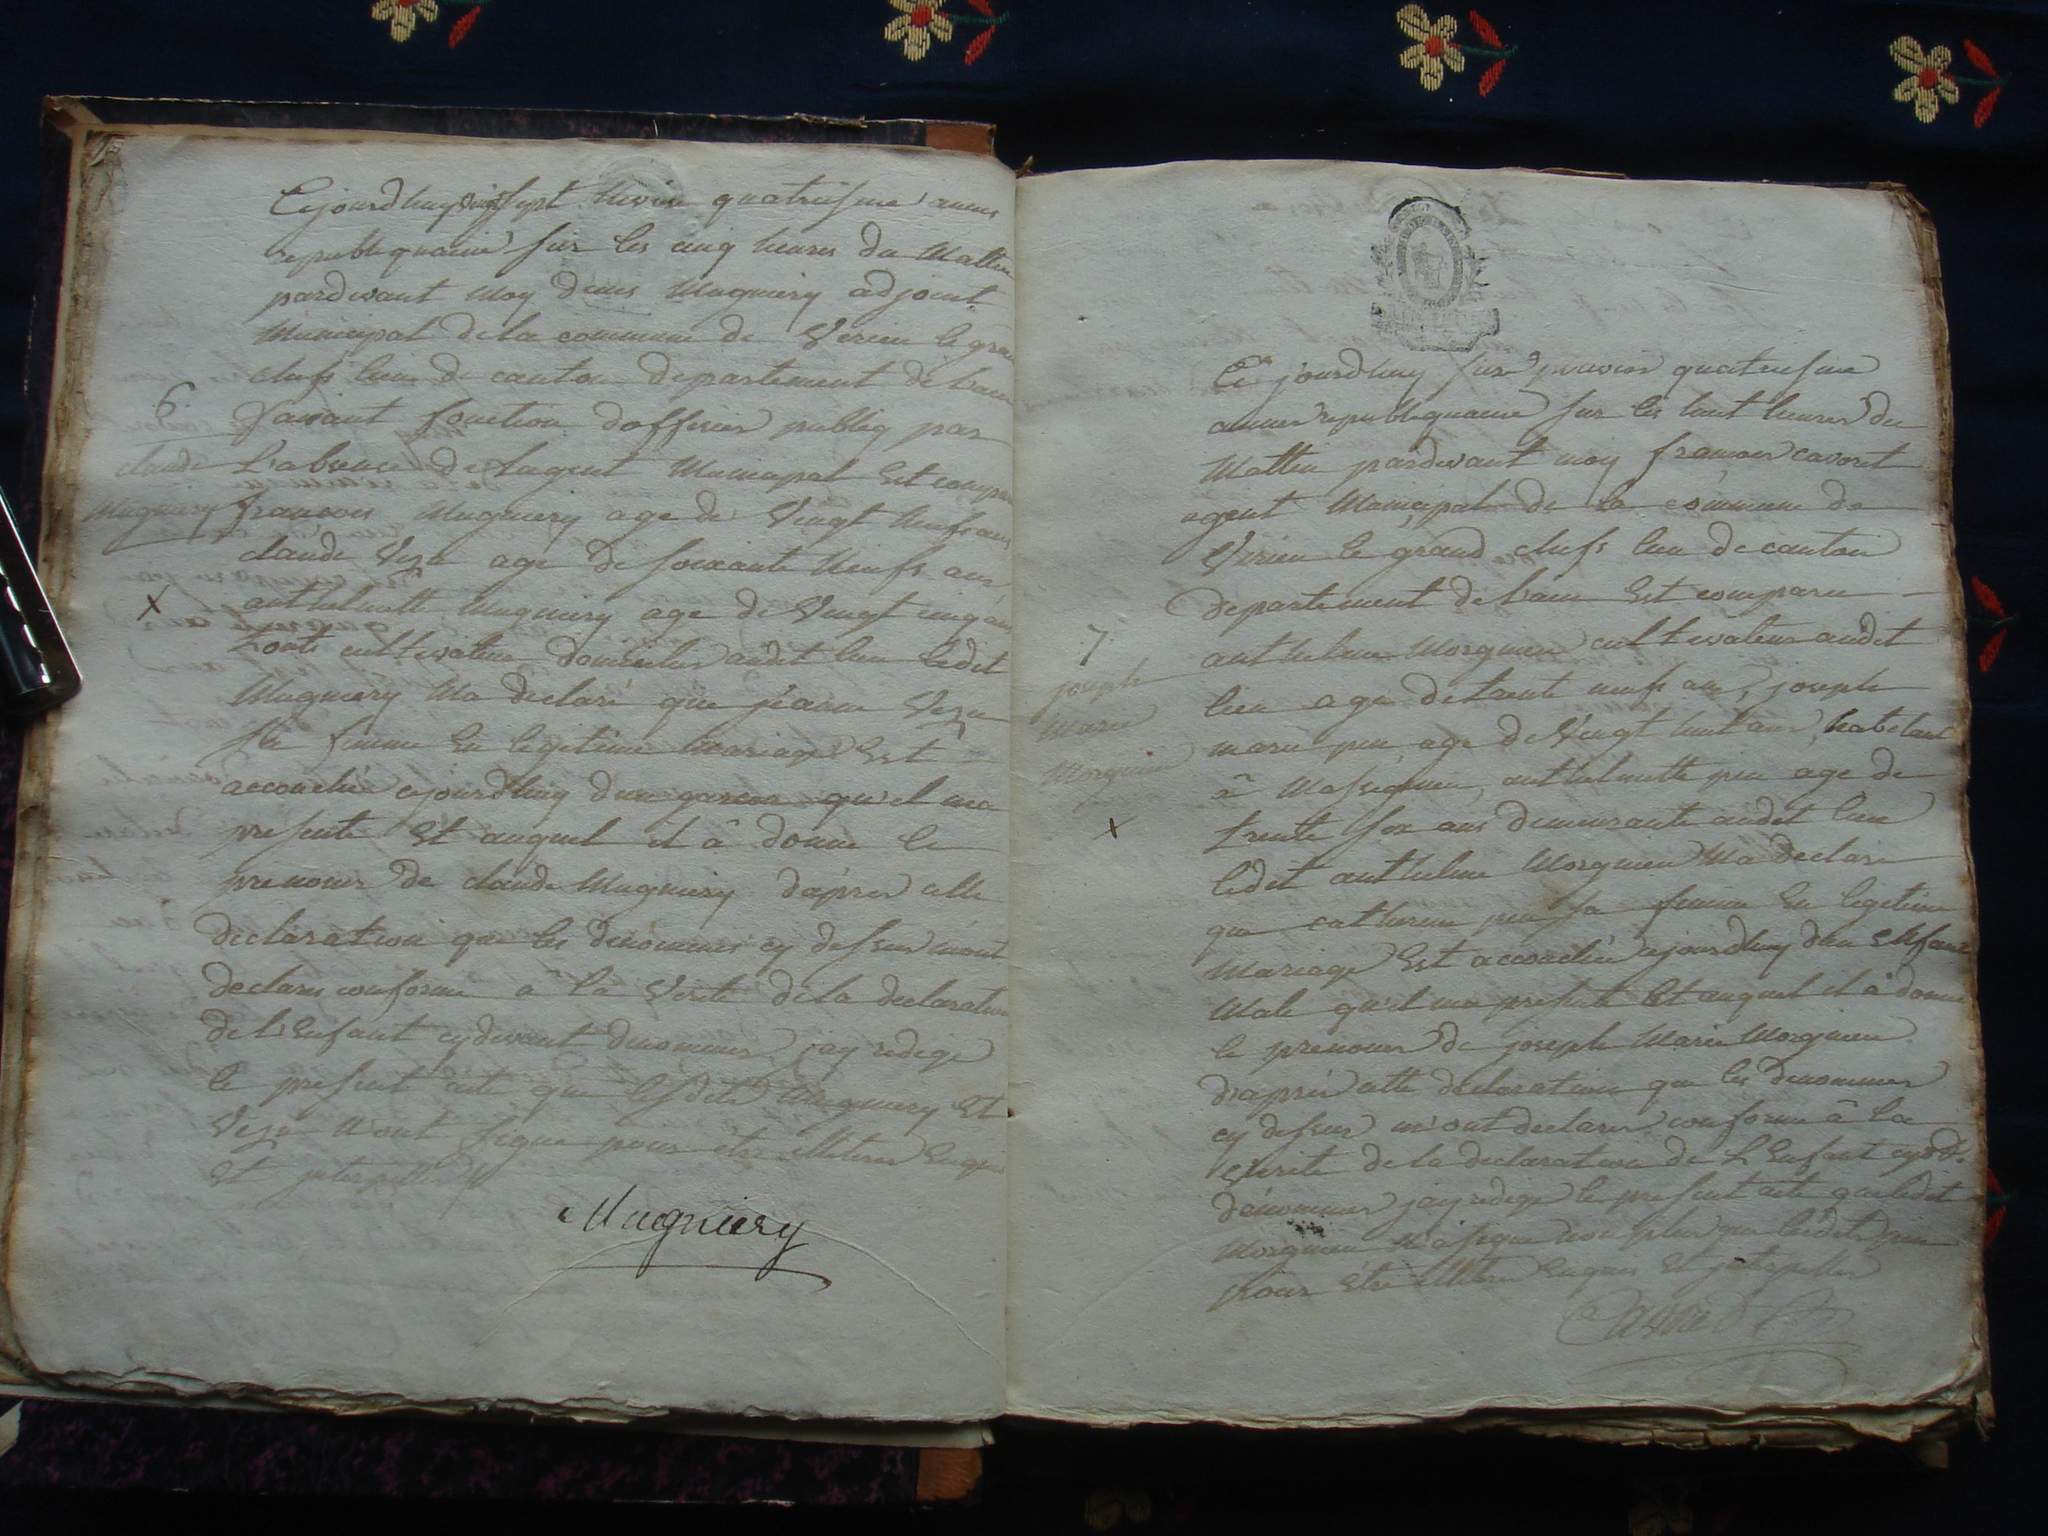 Cejourdhuy vingt sept Nivose quatriesme année
republiquaine sur les cinq heures du Mattin
pardevant moy Denis Mugniery adjoint
Municipal de la commune de Virieu le gran
chefs lieu de canton departement de Lain
faisant fonction dofficier publiq par
L'absence de Lagent Municipal Est compar
francois Mugniery age de Vingt Neufs ans
claude Vezu age de soixante Neufs ans
anthelmette Mugniery age de Vingt cinq ans
touts cultivateur domicilies audit lieu ledit
Mugniery Ma déclaré que jeanne Vezu
sa femme En legitime mariage Est
accouchée cejourdhuy dun garcon qu'il ma
presente Et auquel il à donne le
prenoms de claude Mugniery dapres cette
declaration que les denommes cy dessus m'ont
declares conforme à la Verite de la declaration
de L'Enfant cydevant denommer jay redige
le present acte que lesdits Mugniery Et
Vezu N'ont signe pour etre illiteres Enquis
Et jnterpelles
Mugniery
6
claude
Mugniery
x
Ce jourdhuy pluviose quatriesme
annee republiquaine sur les huit heures du
Mattin pardevant moy francois cavoret
agent Municipal de la commune de
Virieu le grand chefs lieu de canton
departement de Lain Est comparu
anthelme Morgnieu cultivateur audit
lieu age de trente neufs ans, joseph
marie age de Vingt huit ans, habitant
à Massignieu, anthelmette age de
trente six ans demeurante audit lieu
ledit anthelme Morgnieu Ma declare
que catherine sa femme En legitime
Mariage Est accouchée cejourdhuy dun Enfant
Male qu'il ma presente Et auquel il à donne
le prenoms de joseph Marie Morgnieu
dapres cette declaration que les denommes
cy dessus m'ont declares conforme à la
Verite de la declaration de L'Enfant cydt
denommer jay redige le present acte que ledit
Morgnieu N'a signe non plus que lesdits
pour Etre illitere Enquis Et jnterpelles
Cavoret
7
joseph
Marie
Morgnieu
x